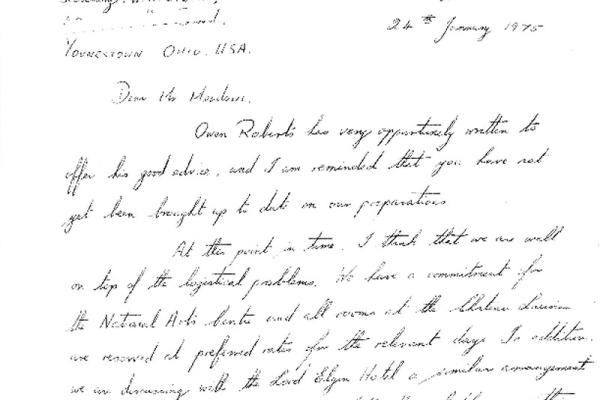 24th January 1975
Youngstown Ohio. USA.
Dear Mr Meadows.
Owen Roberts has very opportunely written to
offer his good advice, and I am reminded that you have not
yet been brought up to date on our preparations
At this point in time, I think that we are well
on top of the logistical problems. We have a commitment for
the National Arts Centre and all rooms at the Chateau Laurier
are reserved at preferred rates for the relevant days In addition.
we are discussing with the Lord Elgin Hotel a similar arrangement